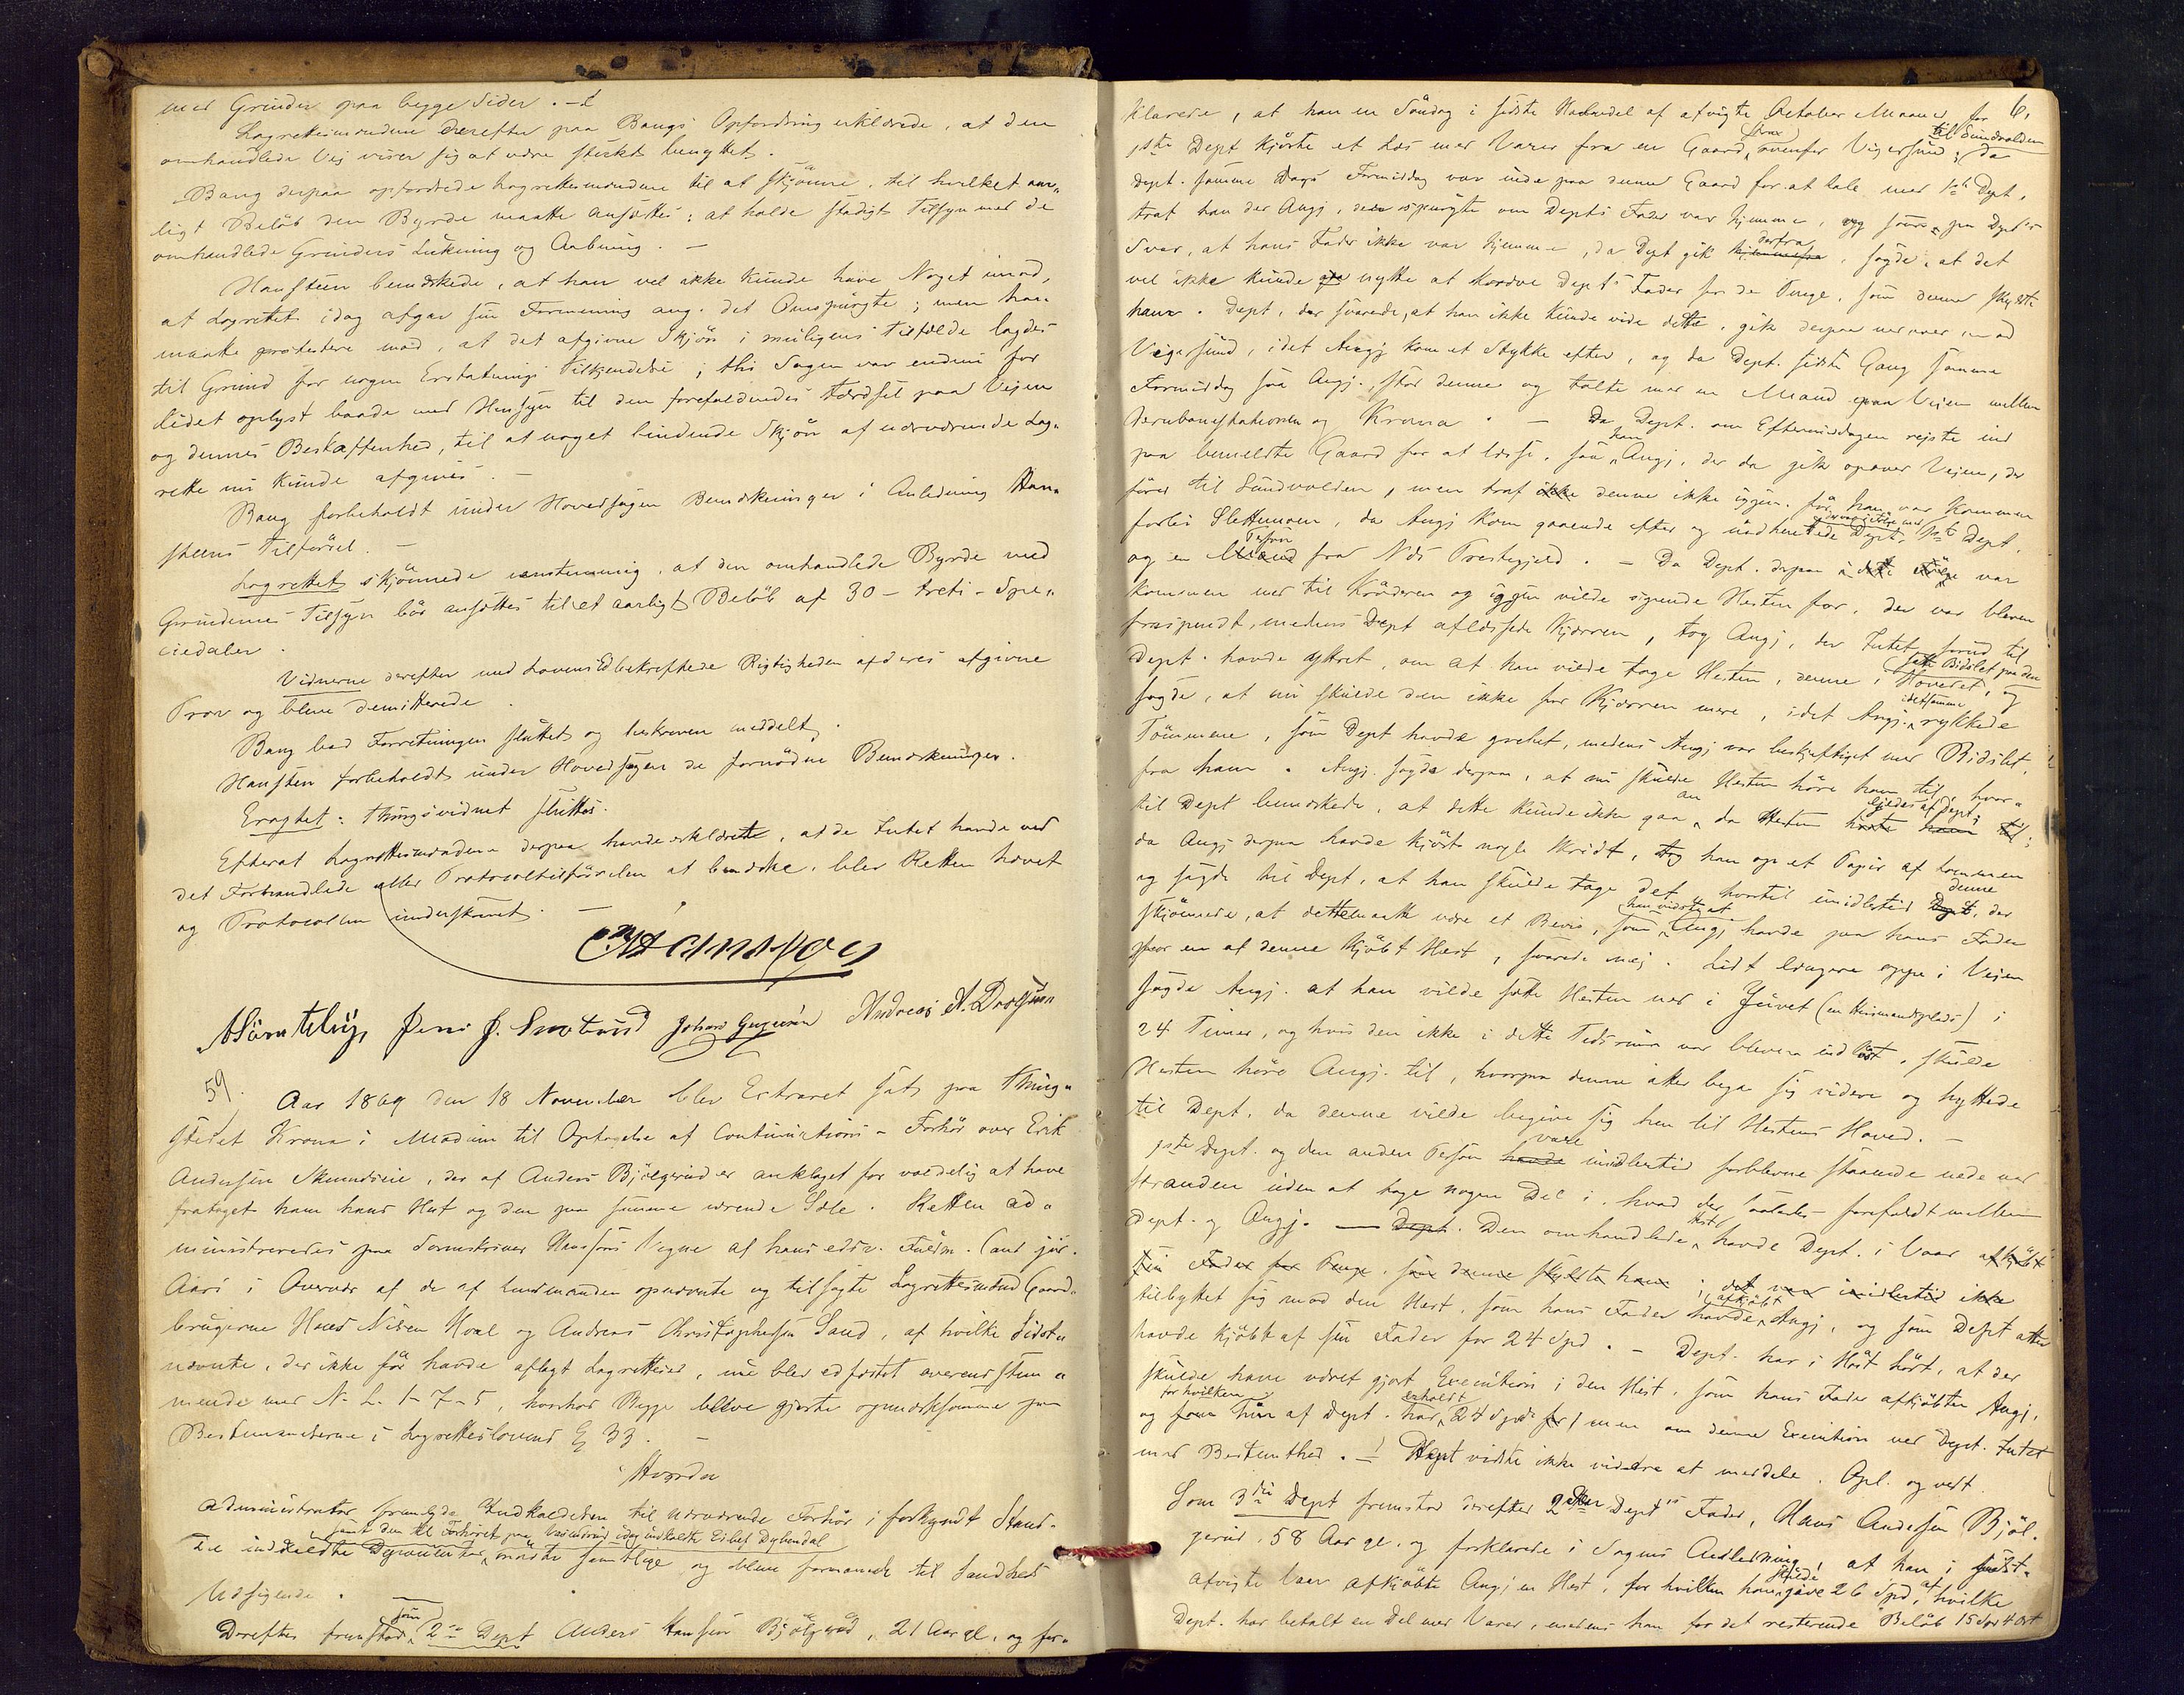 med Grinder paa begge Sider. –
Lagrettesmændene derefter paa Bangs Opfordring erklærede, at den
omhandlede Vej viser sig at være stærkt benyttet.
Bang derpaa opfordrede Lagrettesmændene til at skjønne, til hvilket aar-
ligt Beløb den Byrde maatte ansættes: at holde stadigt Tilsyn med de
omhandlede Grinders Lukning og Aabning. –
Hansteen bemærkede, at han vel ikke kunde have Noget imod,
at Lagrettet idag afgav sin Formening ang. det Omspurgte; men han
maatte protestere mod, at det afgivne Skjøn i muligens Tilfælde lagdes
til Grund for nogen Erstatnings Tilkjendelse; thi Sagen var endnu for
lidet oplyst baade med Hensyn til den forefaldendes Færdsel paa Vejen
og dennes Beskaffenhed, til at noget bindende Skjøn af nærværende Lag-
rette nu kunde afgives. –
Bang forbeholdt under Hovedsagen Bemærkninger i Anledning Han-
steens Tilførsel. –
Lagrettet skjønnede eenstemmig, at den omhandlede Byrde med
Grindernes Tilsyn bør ansættes til et aarligt Beløb af 30 – treti – Spe-
ciedaler.
Vidnerne derefter med Lovens Ed bekræftede Rigtigheden af deres afgivne
Prov og bleve demitterede.
Bang bad Forretningen sluttet og beskreven meddelt.
Hansteen forbeholdt under Hovedsagen de fornødne Bemærkninger.
Eragtet: Thingsvidnet sluttes.
Efterat Lagrettesmændene derpaa havde erklæret, at de Intet havde ved
det Forhandlede eller Protocoltilførselen at bemærke, blev Retten hævet
og Protocollen underskrevet. –
Jens J.
Johan
Andreas A.
59.
Aar 1869 den 18 November blev Extraret sat paa Thing-
stedet Krona i Modum til Optagelse af Continuations-Forhør over Erik
Andersen, der af Anders Bjølgerud er anklaget for voldelig at have
frataget ham hans Hest og den paa samme værende Sæle. Retten ad-
ministreredes paa Sorenskriver Hansons Vegne af hans edsv. Fuldm. Cand. jur.
Aars i Overvær af de af Lensmanden opnævnte og tilsagte Lagrettesmænd Gaard-
brugerne Nilsen Hoal og Andreas Christophersen Sand, af hvilke Sidst-
nævnte, der ikke før havde aflagt Lagrettesed, nu blev edfæstet overensstem-
mende med N. L. 1-7-5, hvorhos Begge bleve gjorte opmærksomme paa
Bestemmelserne i Lagretteslovens § 33. –
Hvorda
Administrator fremlagde Indkaldelsen til nærværende Forhør i forkyndt Stand.
samt den til Forhøret paa idag indkaldte Dybendal
De indkaldte Deponenter mødte samtlige og bleve formanede til Sandheds
Udsigende. –
som
Derefter fremstod 2den Dept Anders Hansen Bjølgerud, 21 Aar gl. og for-
6.
klarede, at han en Søndag i sidste Halvdel af afvigte October Maaned for
strax til Sundvolden
1ste Dept kjørte et Læs med Varer fra en Gaard ovenfor Vigersund; da
Dept. samme Dags Formiddag var inde paa denne Gaard for at tale med 1ste Dept,
traf han der Angj., der spurgte om Depts Fader var hjemme, og paa Dept's
Svar, at hans Fader ikke var hjemme, da Dept gik derfra, sagde, at det
vel ikke kunde nytte at kræve Dept's Fader for de Penge, som denne skyldte
ham. Dept, der svarede, at han ikke kunde vide dette, gik derpaa nedover mod
Vigersund, idet Angj kom et Stykke efter, og da Dept. sidste Gang samme
Formiddag saa Angj., stod denne og talte med en Mand paa Veien mellem
Jernbanestationen og Krona. – Da Dept. om Eftermiddagen rejste ind
paa bemeldte Gaard for at læsse, saa han Angj, der da gik opover Veien, der
fører til Sundvolden, men traf denne ikke igjen, før han var kommen
forbi Slettemoen, da Angj kom gaaende efter og indhentede Dept, 1ste Dept,
Person
og en fra Nds Prestegjeld. – Da Dept. derpaa var
kommen ned til Krøderen og igjen vilde spænde Hesten for, der var bleven
fraspændt, medens Dept aflæssede Kjærren, tog Angj, der Intet forud til
Dept. havde ytret, om at han vilde tage Hesten, denne i Hovedet, satte Bidslet paa den og
sagde, at nu skulde den ikke for Kjærren mere, idet Angj. idetsamme rykkede
Tømmene, som Dept havde grebet, medens Angj var beskjæftiget med Bidslet,
fra ham. Angj. sagde derpaa, at nu skulde Hesten høre ham til, hvor-
til Dept bemærkede, at dette kunde ikke gaa an da Hesten eiedes af Dept;
da Angj derpaa havde kjørt nogle Skridt, tog han op et Papir af Lommen
og sagde til Dept, at han skulde tage det, hvortil imidlertid denne, der
skjønnede, at dette maatte være et Bevis, som han vidste at Angj havde paa hans Fader
for en af denne kjøbt Hest, svarede nej. Lidt længere oppe i Veien
sagde Angj. at han vilde sætte Hesten ned i Juvet (en Husmandsplads) i
24 Timer, og hvis den ikke i dette Tidsrum var bleven indløst, skulde
Hesten høre Angj. til, hvorpaa denne atter begav sig videre og hyttede
til Dept. da denne vilde begive sig hen til Hestens Hoved. –
1ste Dept. og den anden Person vare imidlertid forblevne staaende nede ved
Stranden uden at tage nogen Del i, hvad der saaledes forefaldt mellem
Dept. og Angj. – Den omhandlede Hest havde Dept. i Vaar
tilbyttet sig mod den Hest, som hans Fader havde afkjøbt Angj, og som Dept atter
havde kjøbt af sin Fader for 24 Spd. – Dept. har i Høst hørt, at der
skulde have været gjort Execution i den Hest, som hans Fader afkjøbte Angj,
og for hvilken hin af Dept. har erholdt 24 Spd; men om denne Execution ved Dept. Intet
med Bestemthed. – Dept vidste ikke videre at meddele. Opl. og vedt.
Som 3die Dept fremstod derefter 2den Dept's Fader, Hans Andersen Bjøl-
gerud, 58 Aar gl. og forklarede i Sagens Anledning, at han i sidst-
afvigte Vaar afkjøbte Angj en Hest, for hvilken han skulde give 26 Spd, af hvilke
Dept. har betalt en Del med Varer, medens han for det resterende Beløb 15 Spd 4 Ort